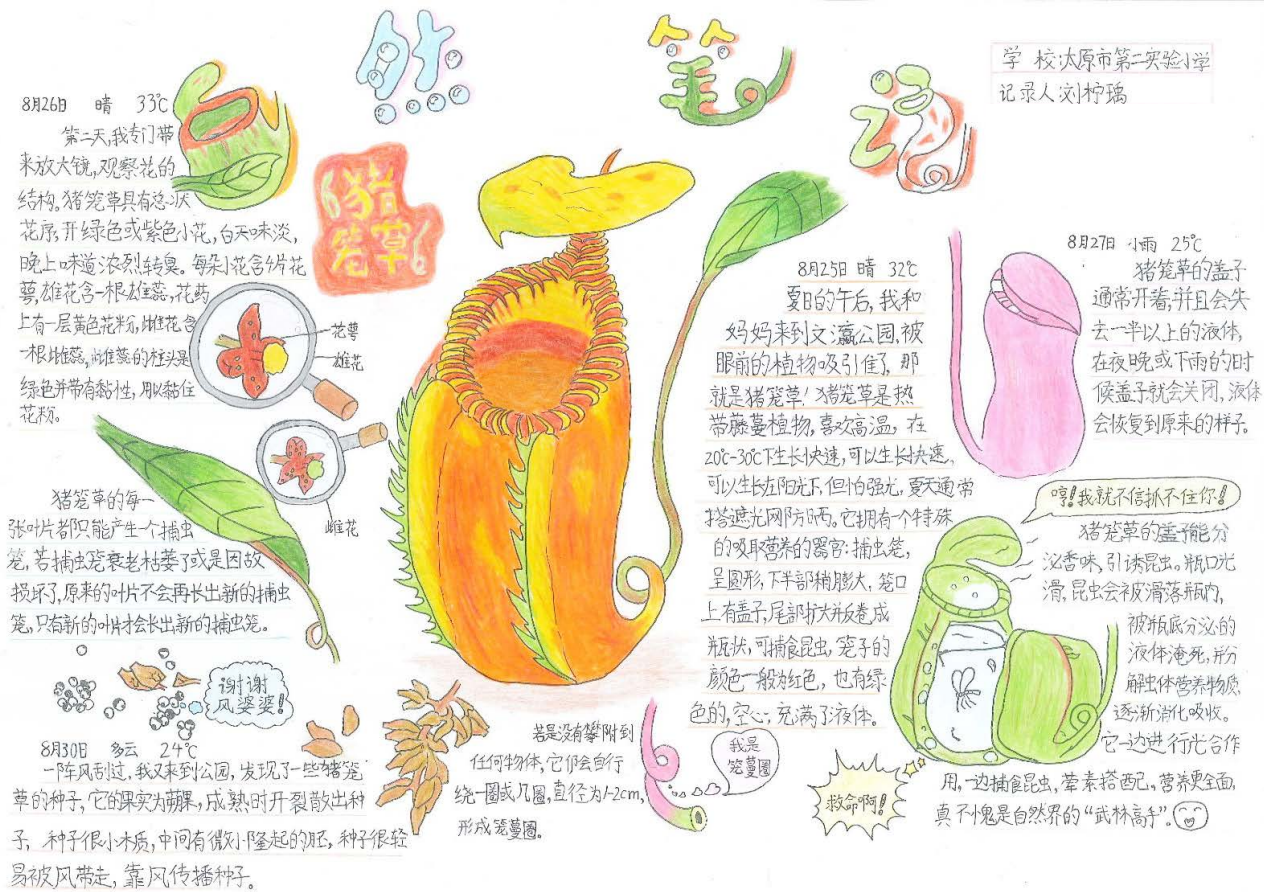 自然
笔
记
学 校:太原市第二实验小学
记录人:刘柠瑀
猪
笼草
8月26日 晴 33℃
第二天,我专门带
来放大镜,观察花的
结构。猪笼草具有总状
花序,开绿色或紫色小花,白天味淡,
晚上味道浓烈转臭。每朵小花含4片花
萼,雄花含一根雄蕊,花药
上有一层黄色花粉,雌花含
一根雌蕊,雌蕊的柱头是
绿色并带有黏性,用以黏住
花粉。
花萼
雄花
雌花
猪笼草的每一
张叶片都只能产生一个捕虫
笼,若捕虫笼衰老枯萎了或是因故
损坏了,原来的叶片不会再长出新的捕虫
笼,只有新的叶片才会长出新的捕虫笼。
谢谢
风婆婆!
8月30日 多云 24℃
一阵风刮过,我又来到公园,发现了一些猪笼
草的种子,它的果实为蒴果,成熟时开裂散出种
子,种子很小木质,中间有微小隆起的胚,种子很轻
易被风带走,靠风传播种子。
8月25日 晴 32℃
夏日的午后,我和
妈妈来到文瀛公园,被
眼前的植物吸引住了,那
就是猪笼草!猪笼草是热
带藤蔓植物,喜欢高温,在
20℃-30℃下生长快速,可以生长快速,
可以生长在阳光下,但怕强光,夏天通常
搭遮光网防晒。它拥有一个特殊
的吸取营养的器官:捕虫笼,
呈圆形,下半部稍膨大,笼口
上有盖子,尾部扩大并反卷成
瓶状,可捕食昆虫,笼子的
颜色一般为红色,也有绿
色的,空心;充满了液体。
若是没有攀附到
任何物体,它们会自行
绕一圈或几圈,直径为1-2cm,
形成笼蔓圈。
我是
笼蔓圈
8月27日 小雨 25℃
猪笼草的盖子
通常开着,并且会失
去一半以上的液体,
在夜晚或下雨的时
候盖子就会关闭,液体
会恢复到原来的样子。
哼!我就不信抓不住你!
猪笼草的盖子能分
泌香味,引诱昆虫。瓶口光
滑,昆虫会被滑落瓶内,
被瓶底分泌的
液体淹死,并分
解虫体营养物质,
逐渐消化吸收。
它一边进行光合作
用,一边捕食昆虫,荤素搭配,营养更全面,
真不愧是自然界的“武林高手”。
救命啊!